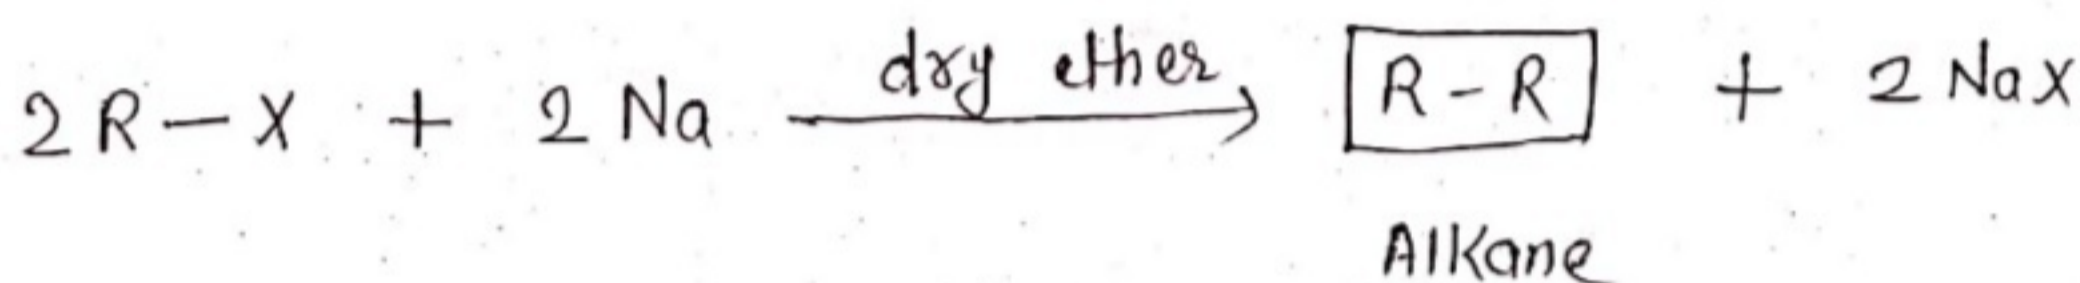 2R-X + 2 Na dry ether → R-R + 2 NaX
Alkane